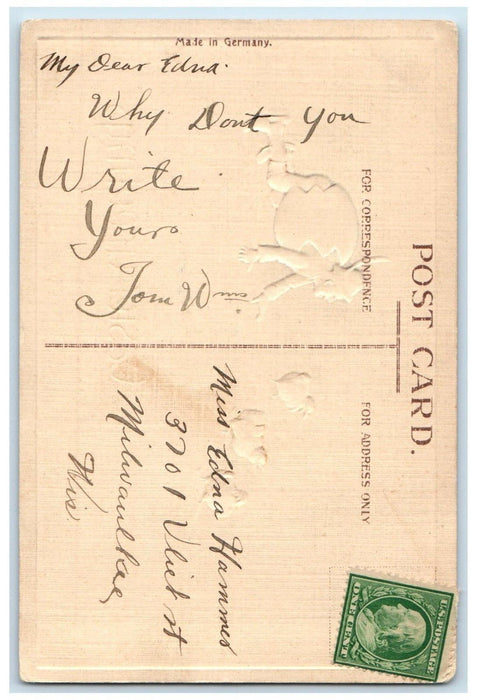 Made in Germany.
My Dear Edna.
Why Dont You
Write
Yours
Tom Wms
POST CARD.
FOR CORRESPONDENCE
FOR ADDRESS ONLY
Miss Edna Hammes
3701 Vliet st
Milwaukee,
Wis.
U.S. POSTAGE
ONE CENT